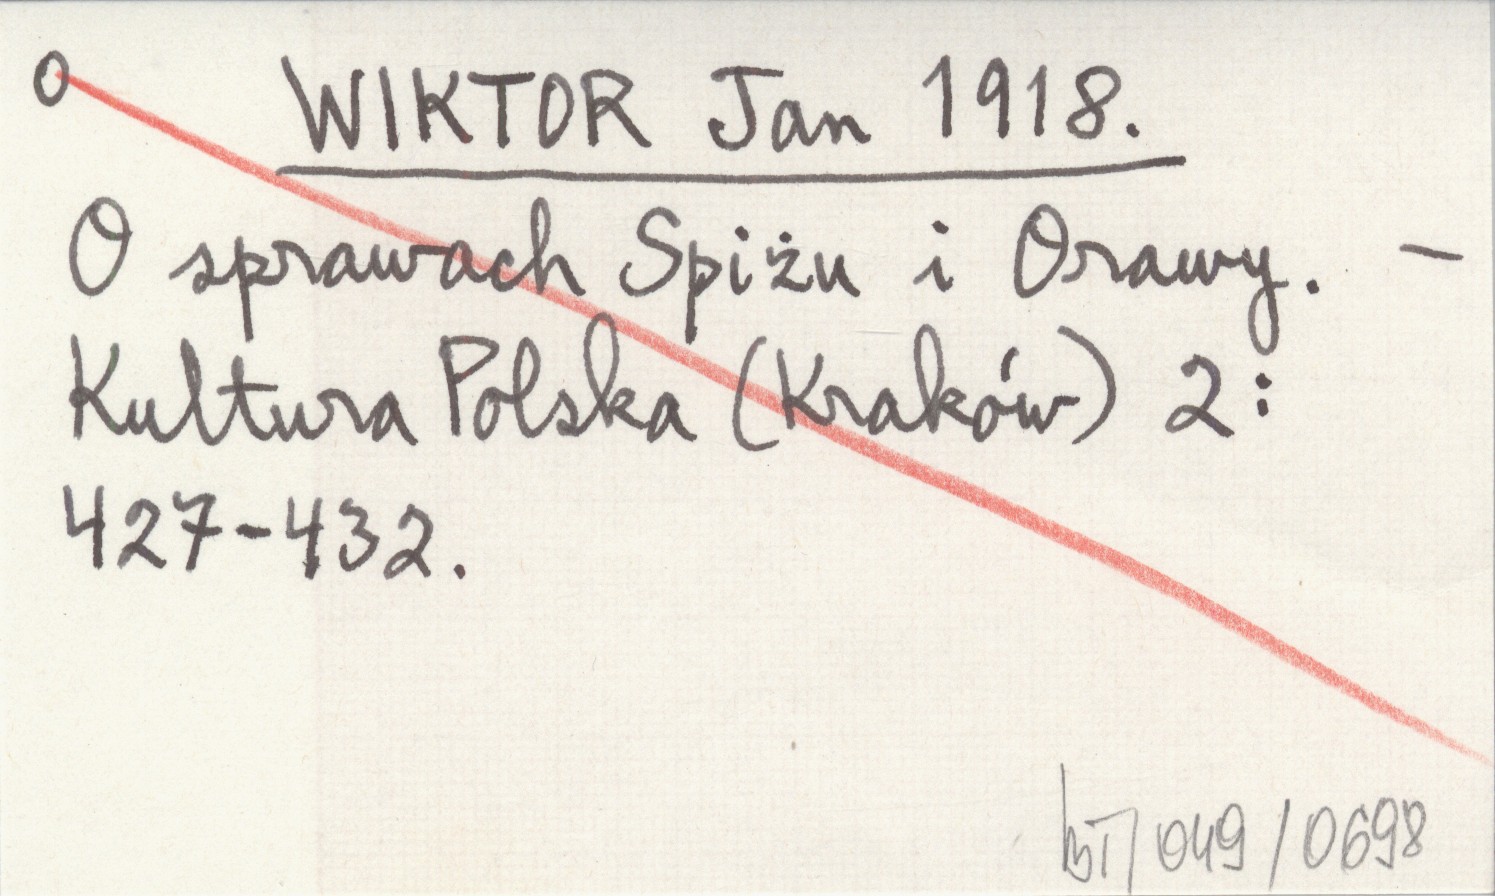 O WIKTOR Jan 1918.
O sprawach Spiżu i Orawy. –
Kultura Polska (Kraków) 2:
427-432.
/049/0698